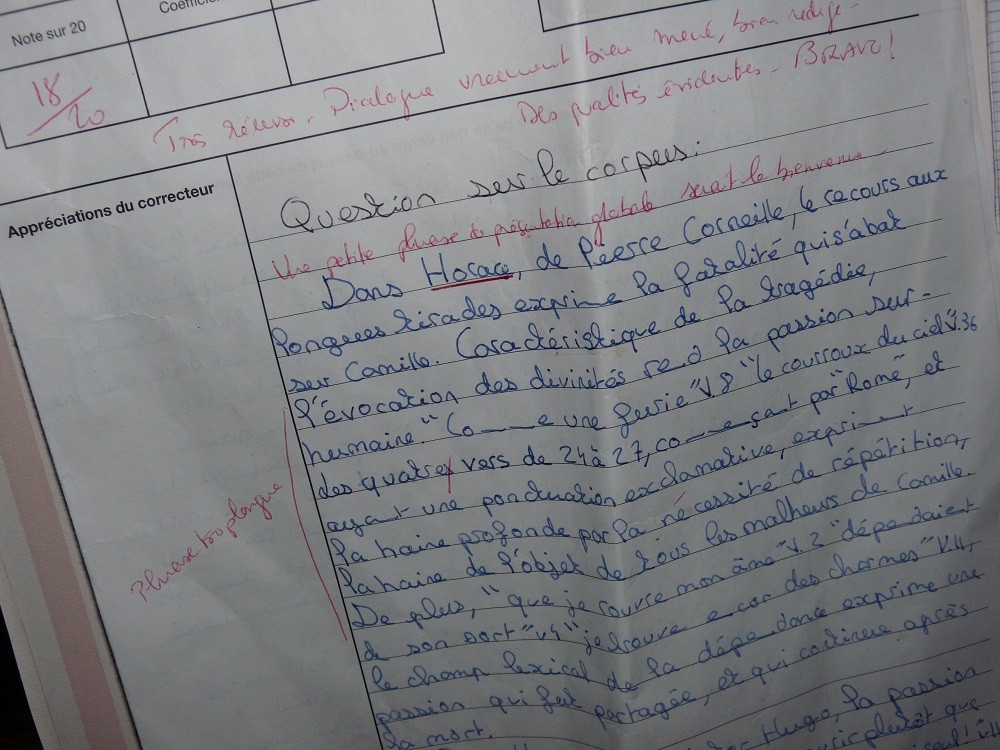 Note sur 20
Coefficie
18/20
Très sérieux. Dialogue vraiment bien mené, bien rédigé.
Des qualités évidentes. BRAVO!
Appréciations du correcteur
Question sur le corpus:
Une petite phrase de présentation globale serait la bienvenue.
Dans Horace, de Pierre Corneille, le recours aux
longues tirades exprime la fatalité qui s'abat
sur Camille. Caractéristique de la tragédie,
l'évocation des divinités rend la passion sur-
humaine. "Comme une furie" V.8 "le courroux du ciel" V.36
des quatres vers de 24 à 27, commençant par "Rome", et
ayant une ponctuation exclamative, expriment
la haine profonde par la nécessité de répétition,
la haine de l'objet de tous les malheurs de Camille.
Phrase trop longue
De plus, "que je rouvre mon âme" V.2 "dépendaient
de son sort" V4 "je trouve encor des charmes" V.4,
le champ lexical de la dépendance exprime une
passion qui fut partagée, et qui continue après
la mort.
Hugo, la passion
plutôt que